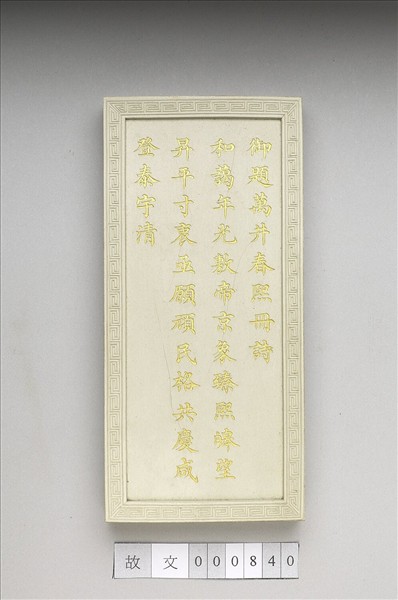 御題萬井春熙冊詩
和藹年光敷帝京象臻熙皞望
昇平寸衷亟願頑民格共慶咸
登泰宇清
故文000840